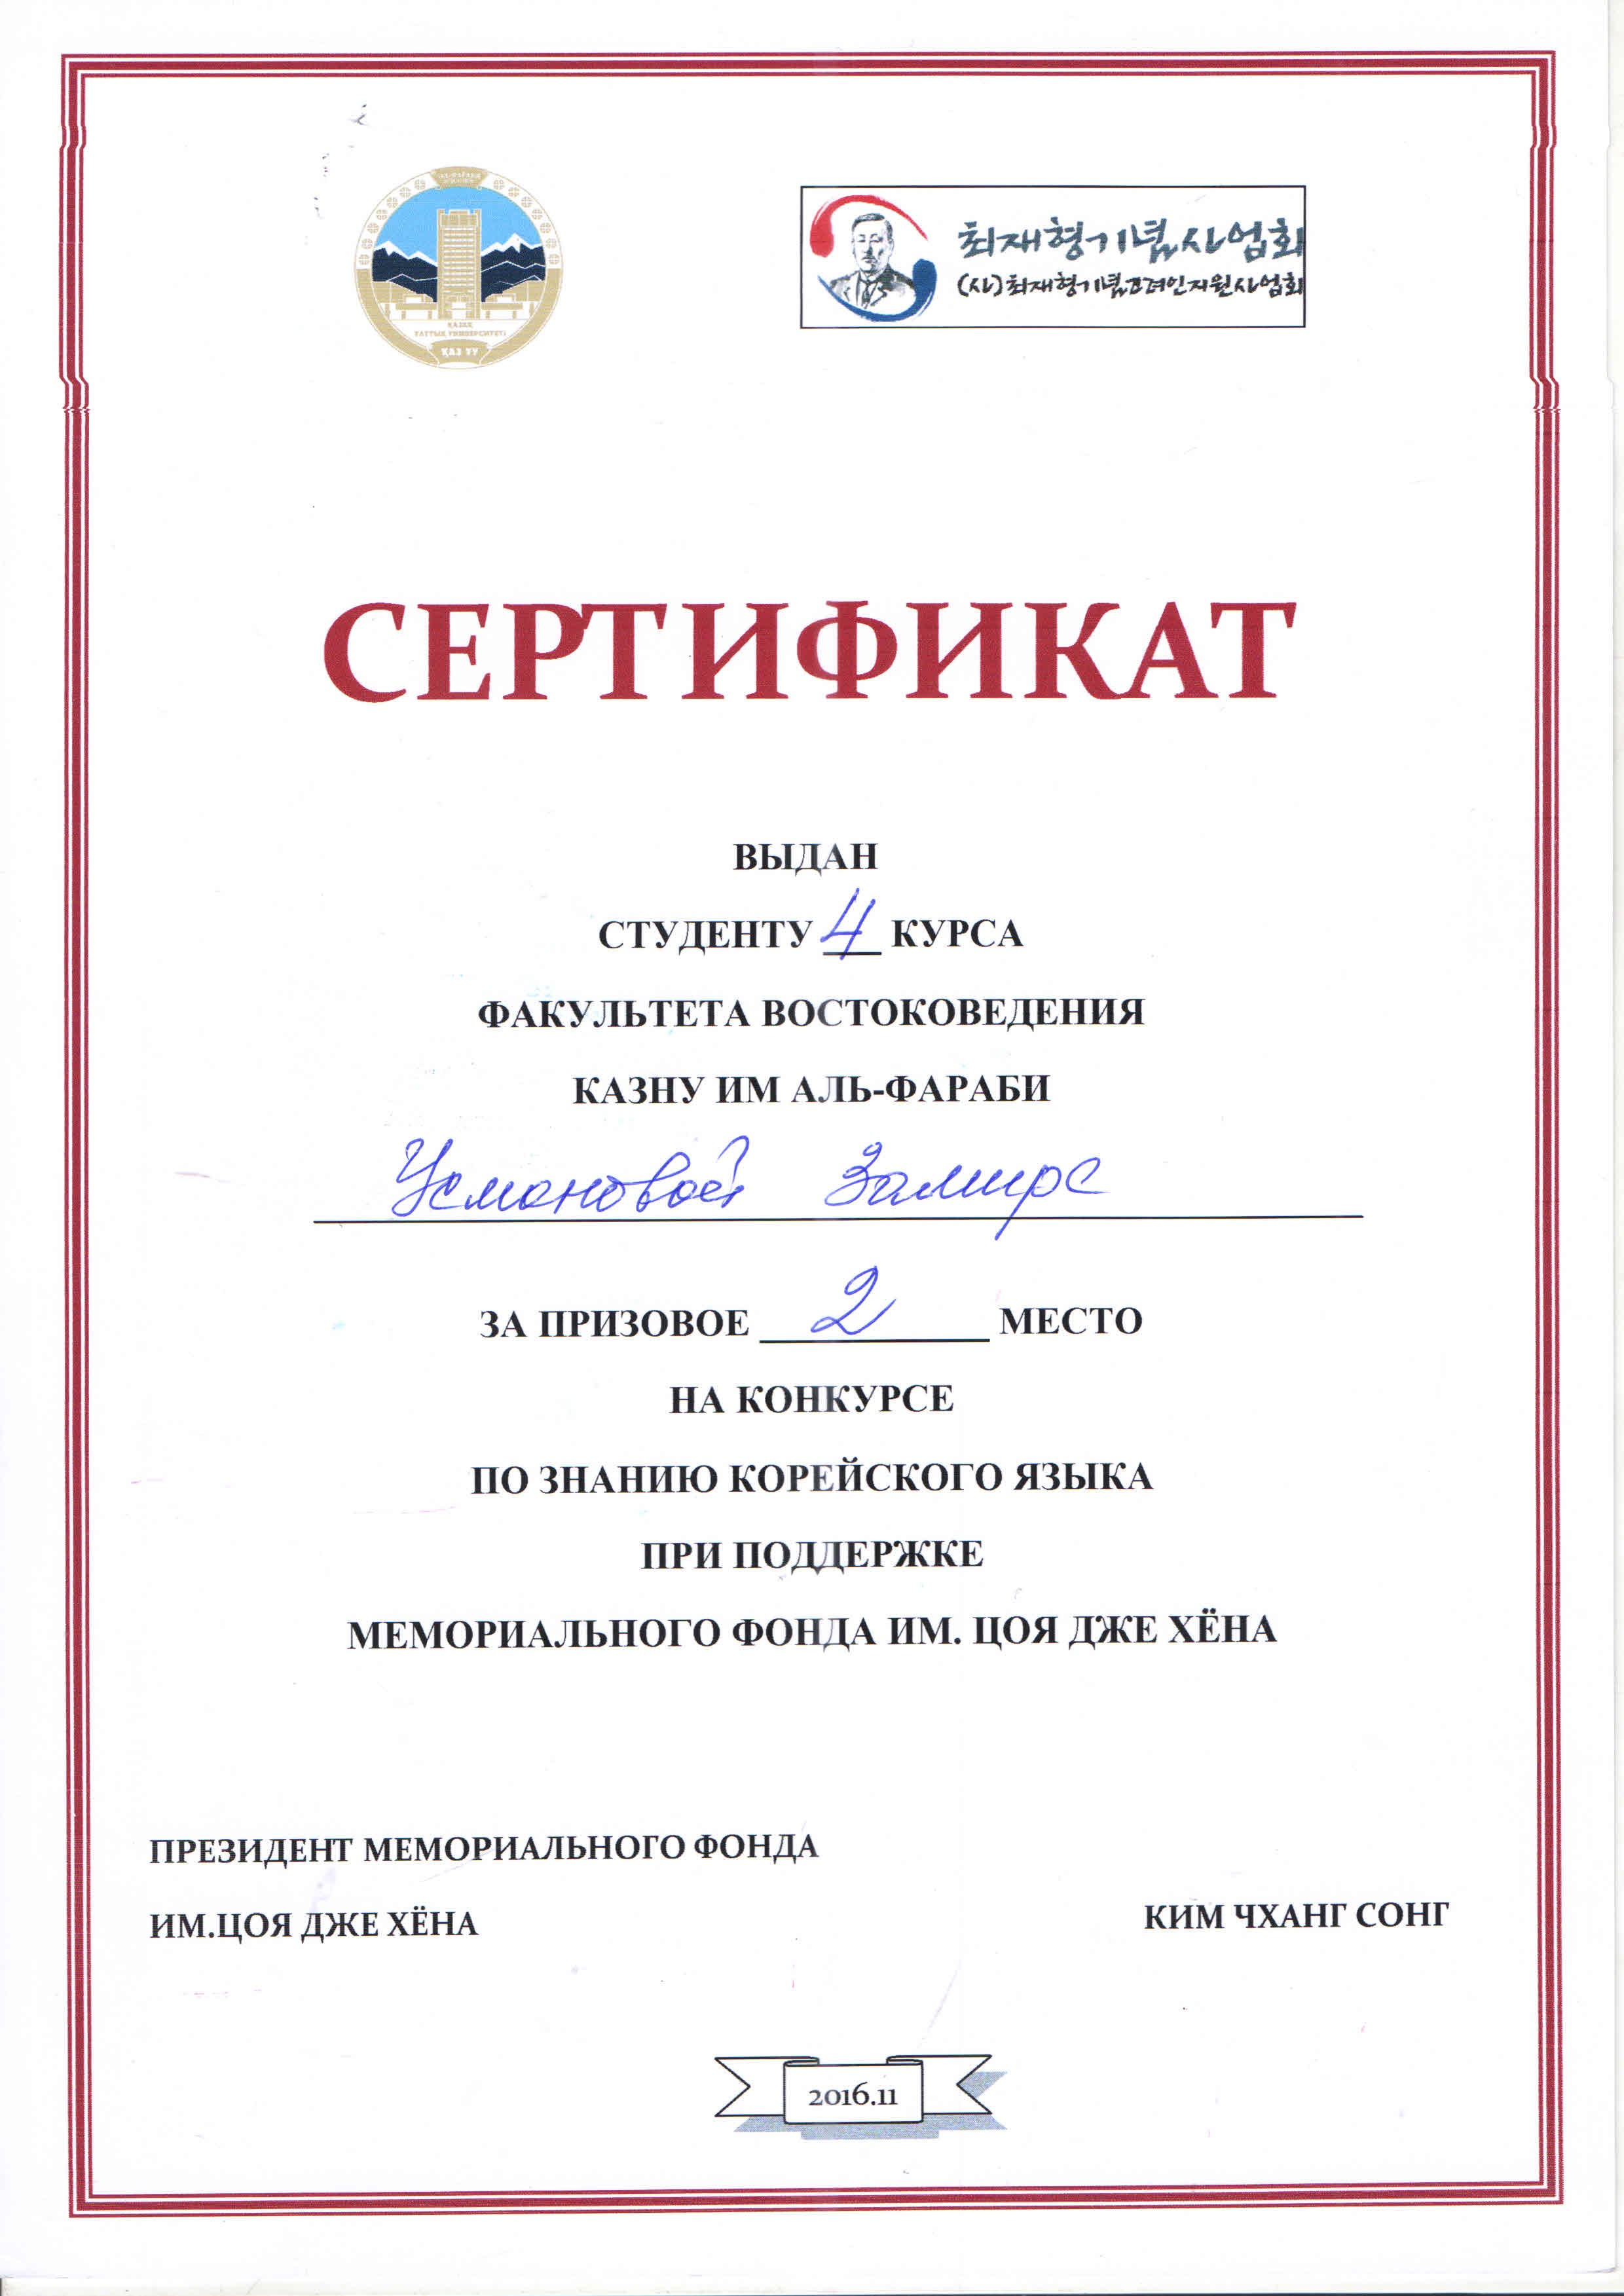 ҚАЗАҚ
ҰЛТТЫҚ УНИВЕРСИТЕТІ
ҚАЗ ҰУ
최재형기념사업회
(사)최재형기념고려인지원사업회
СЕРТИФИКАТ
ВЫДАН
СТУДЕНТУ 4 КУРСА
ФАКУЛЬТЕТА ВОСТОКОВЕДЕНИЯ
КАЗНУ ИМ АЛЬ-ФАРАБИ
Усмановой Замире
ЗА ПРИЗОВОЕ 2 МЕСТО
НА КОНКУРСЕ
ПО ЗНАНИЮ КОРЕЙСКОГО ЯЗЫКА
ПРИ ПОДДЕРЖКЕ
МЕМОРИАЛЬНОГО ФОНДА ИМ. ЦОЯ ДЖЕ ХЁНА
ПРЕЗИДЕНТ МЕМОРИАЛЬНОГО ФОНДА
ИМ.ЦОЯ ДЖЕ ХЁНА КИМ ЧХАНГ СОНГ
2016.11